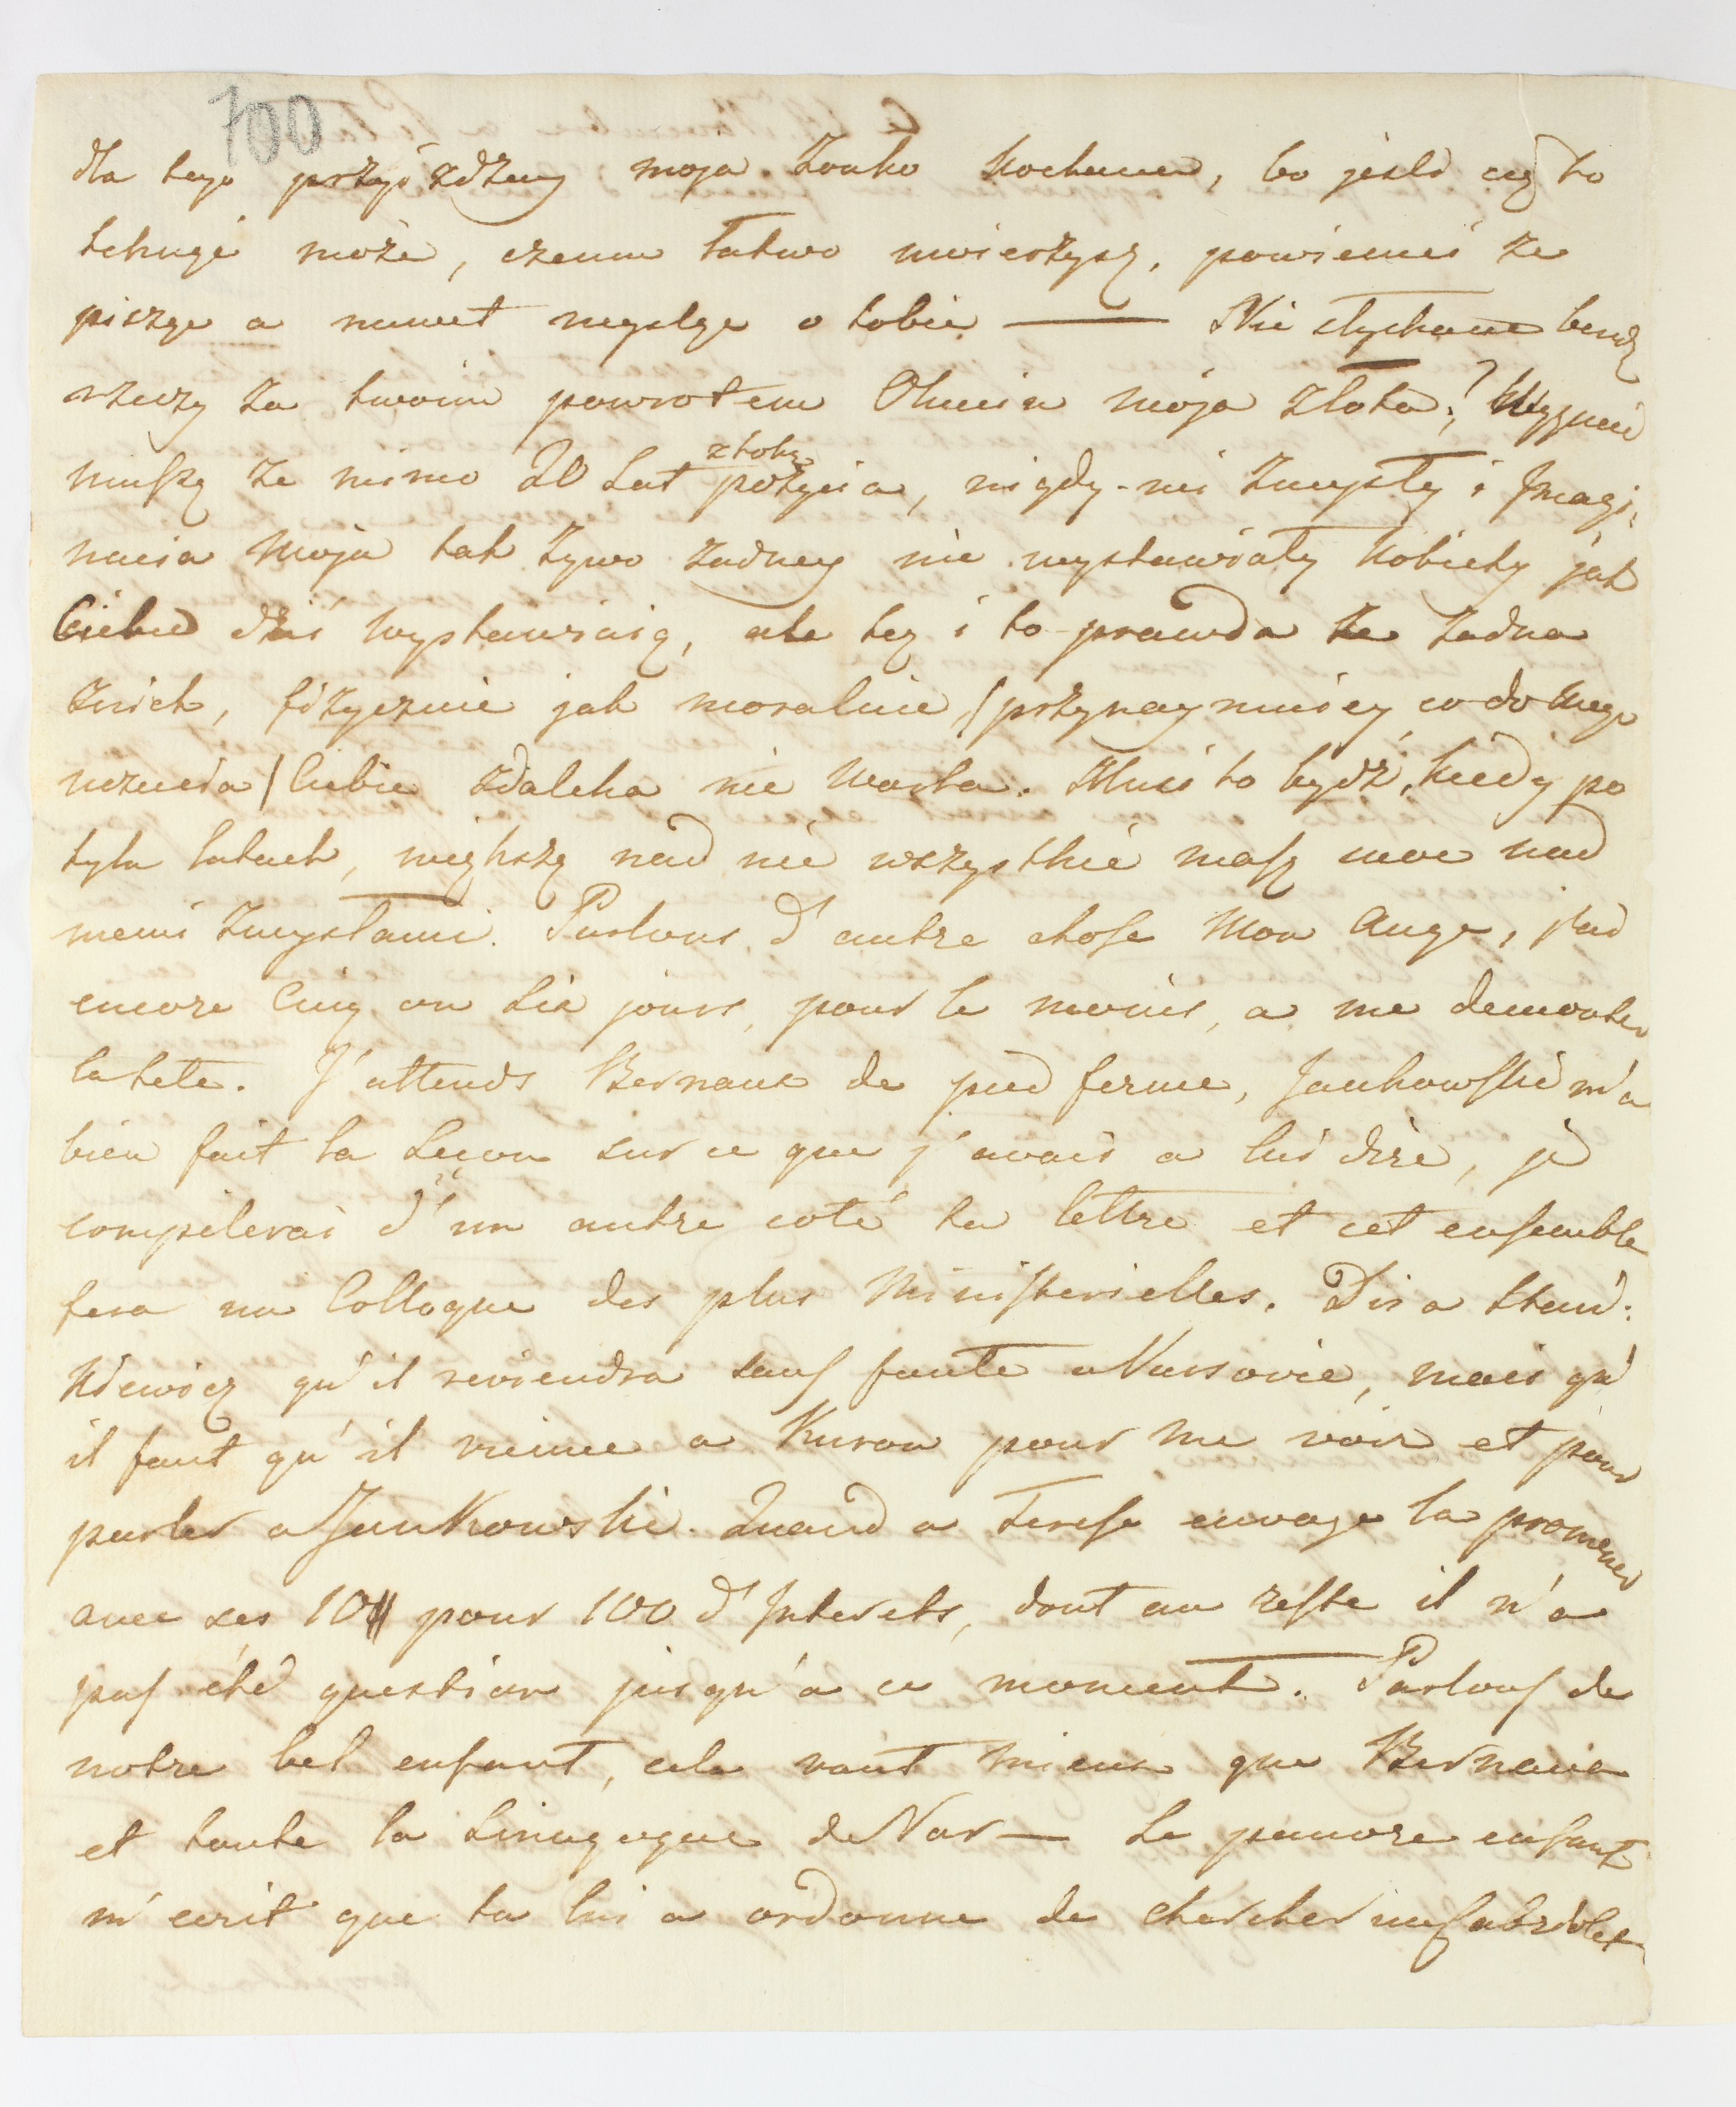 700
dla tego przyiezdzay moja Zonko kochana, bo jesli cię to
tchnąć może, czemu łatwo uwierzysz, powiem ci ze
piszę a nawet myslę o tobie — Nie słychane bendą
rzeczy za twoim powrotem Olunia moja złota! Wyznać
muszę ze mimo 20 Lat z tobą pożycia, nigdy mi Zmysły i Jmagi,
nacia moja tak zywo zadney nie wystawiały kobiety jak
Ciebie dziś wystawiaią, ale tez i to prawda ze zadna
znich, fizycznie jak moralnie, /przynaymniey co do mego
uczucia/ Ciebie zdaleka nie warta. Musi to bydź, kiedy po
tylu latach, większą nad nie wszystkie masz moc nad
memi Zmysłami. Parlons d'autre chose Mon Ange, j'ai
encore Cinq ou Six jours, pour le moins, a me demonter
la tete. J'attends Bernaux de pied ferme, Jankowski m'a
bien fait la Leçon sur ce que j'avais a lui dire, je
compilerai d'un autre coté ta lettre et cet ensemble
fera un Colloque des plus Ministerielles. Dis a Stan:
kiewicz qu'il reviendra sans faute a Varsovie, mais qu'
il faut qu'il vienne a Kurow pour me voir et pour
parler a Jankowski. Quand a Terese envoye la promener
avec ses 10 pour 100 d'Jnterets, dont au reste il n'a
pas été question jusqu'a ce moment. Parlons de
notre bel enfant, cela vaut mieux que Bernaux
et toute la Sinagogue de Var — Le pauvre enfant
m'ecrit que tu lui a ordonne de chercher un Cabriolet